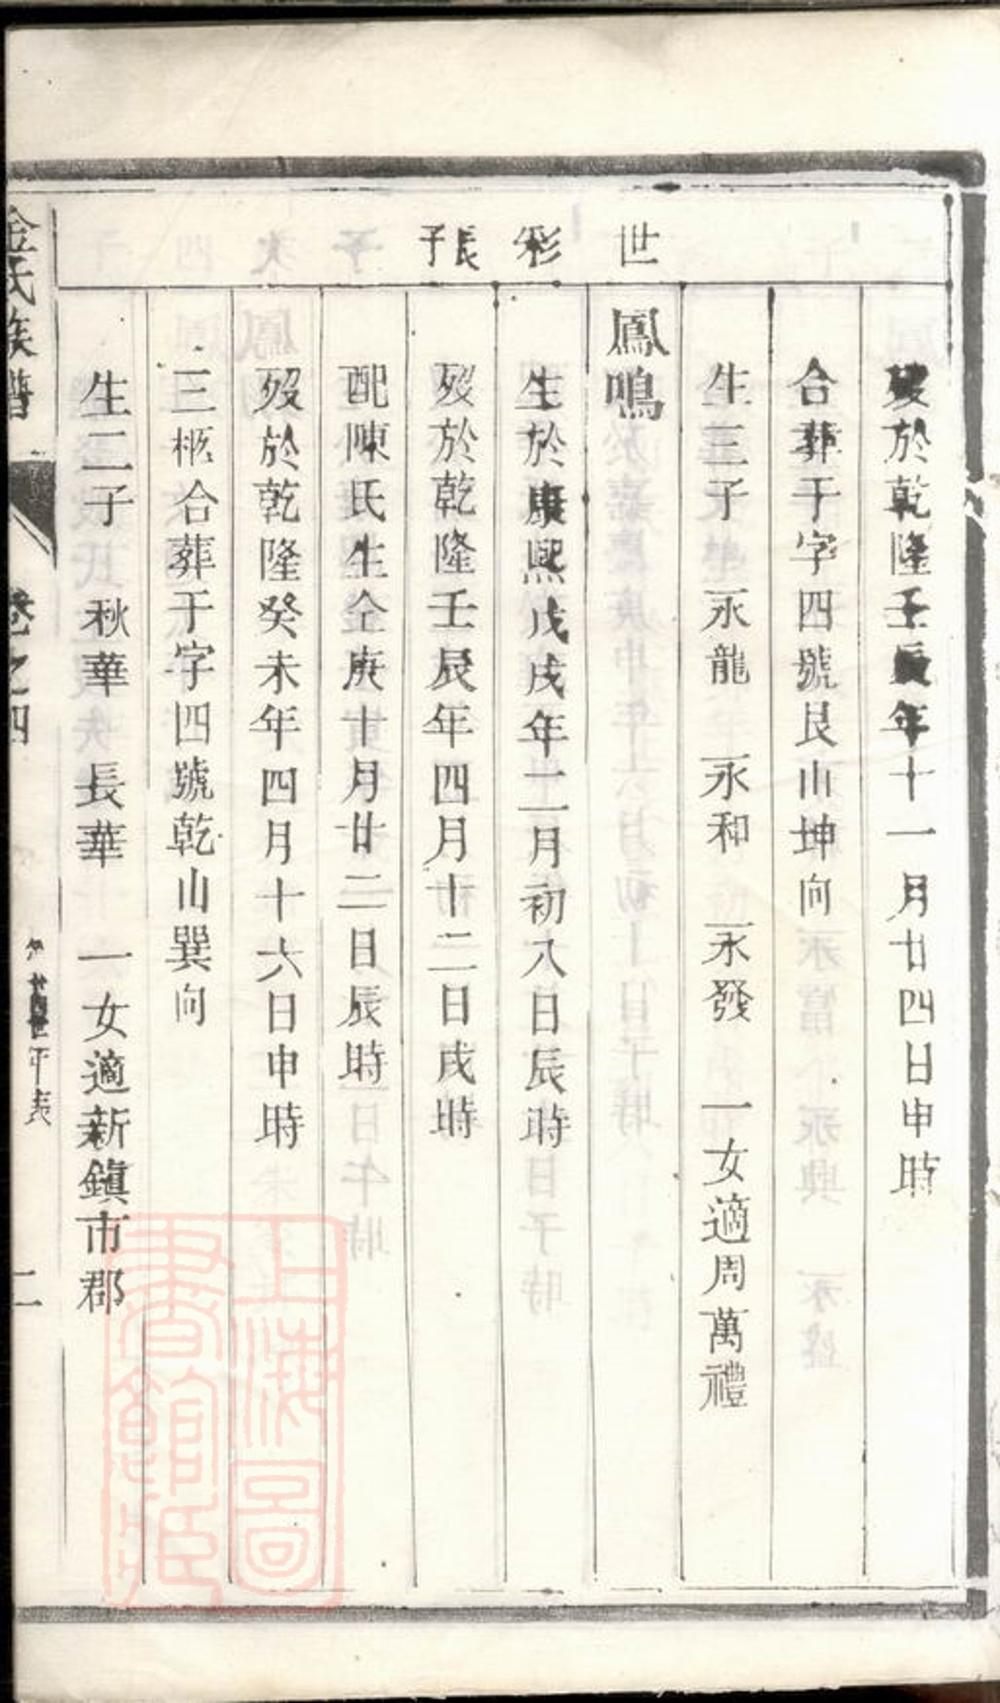 世彩長子
歿於乾隆壬辰年十一月廿四日申時
合葬于字四號艮山坤向
生三子 永龍 永和 永發 一女適周萬禮
鳳鳴
生於康熙戊戌年二月初八日辰時
歿於乾隆壬辰年四月十二日戌時
配陳氏生仝庚十月廿二日辰時
歿於乾隆癸未年四月十六日申時
三柩合葬于字四號乾山巽向
生二子 秋華 長華 一女適新鎮市郡
金氏族譜 卷之四 年表 二
上海圖書館藏